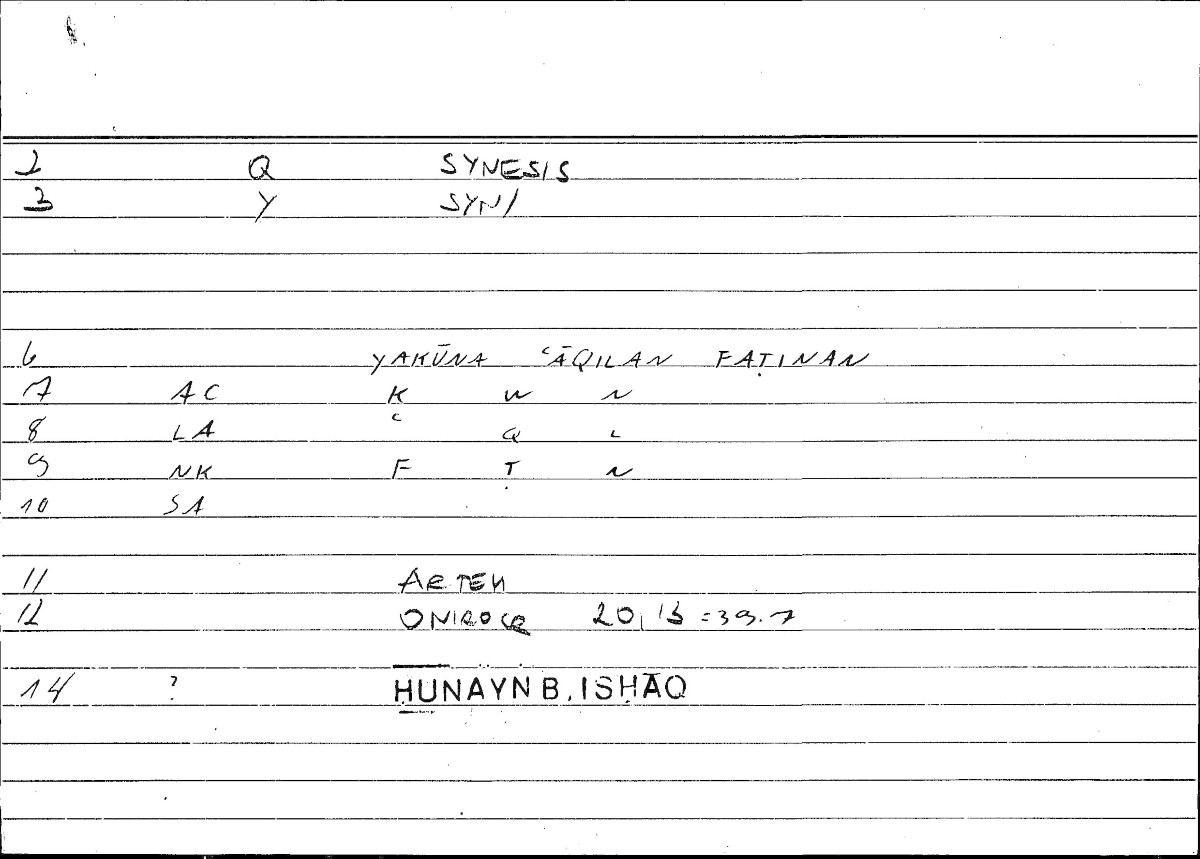 2 Q SYNESIS
3 Y SYN/
6 YAKŪNA ʿĀQILAN FAṬINAN
7 AC K W N
8 LA ʿ Q L
9 NK F Ṭ N
10 SA
11 ARTEM
12 ONIROCR 20,13 = 39.7
14 ? ḤUNAYN B. ISḤĀQ